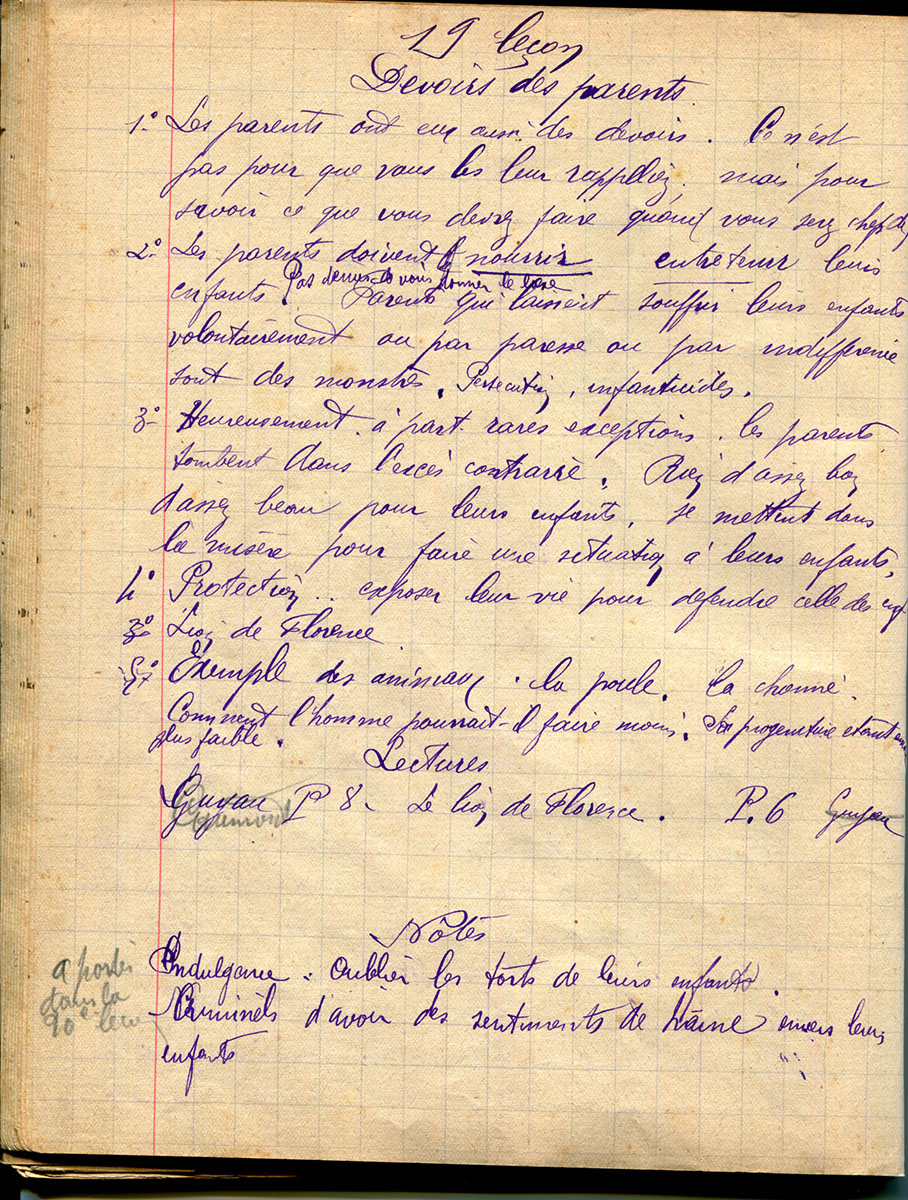 19 leçon
Devoirs des parents.
1º Les parents ont eux aussi des devoirs. Ce n'est
pas pour que vous les leur rappeliez. mais pour
savoir ce que vous devrez faire quand vous serez chefs de
2º Les parents doivent nourrir entretenir leurs
enfants Pas tenus à vous donner le luxe
Parents qui laissent souffrir leurs enfants
volontairement ou par paresse ou par indifférence
sont des monstres. Persécution, infanticides.
3º Heureusement. à part rares exceptions. les parents
tombent dans l'excès contraire. Rien d'assez bon
d'assez beau pour leurs enfants, se mettent dans
la misère pour faire une situation à leurs enfants,
4º Protection .. exposer leur vie pour defendre celle des enf
3º Lion de Florence
5º Exemple des animaux. la poule. la chienne.
Comment l'homme pourrait-il faire moins. Sa progeniture etant
plus faible.
Lectures
Guyau P 8 - Le lion de Florence. P. 6 Guyau
Notes
Indulgence. Oublier les torts de leurs enfants.
Criminels d'avoir des sentiments de haine envers leurs
enfants
a porter
dans la
20e leçon